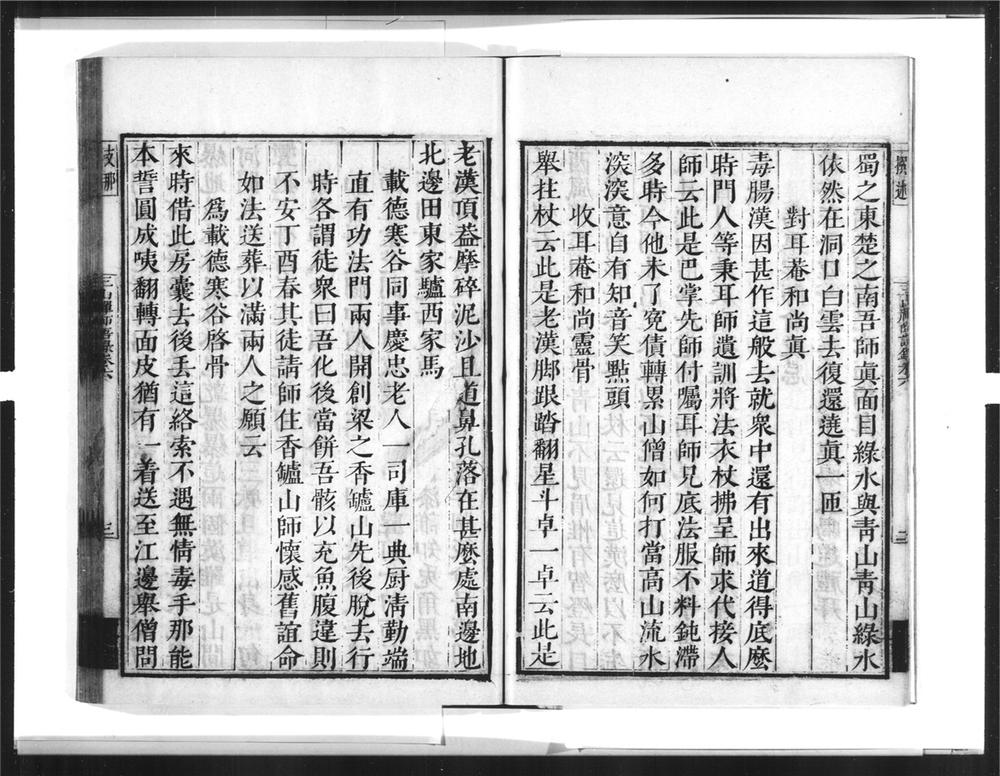 蜀之東楚之南吾師眞面目綠水與靑山靑山綠水
依然在洞口白雲去復還遶眞一匝
對耳菴和尚眞
毒腸漢因甚作這般去就衆中還有出來道得底麽
時門人等秉耳師遺訓將法衣杖拂呈師求代接人
師云此是巴掌先師付囑耳師兄底法服不料鈍滯
多時今他未了寃債轉累山僧如何打當高山流水
深深意自有知音笑點頭
收耳菴和尚靈骨
舉拄杖云此是老漢脚跟踏翻星斗卓一卓云此是
老漢頂葢摩碎泥沙且道鼻孔落在甚麽處南邊地
北邊田東家驢西家馬
載德寒谷同事慶忠老人一司庫一典厨淸勤端
直有功法門兩人開創梁之香鑪山先後脫去行
時各謂徒衆曰吾化後當餅吾骸以充魚腹違則
不安丁酉春其徒請師住香鑪山師懷感舊誼命
如法送葬以滿兩人之願云
爲載德寒谷啓骨
來時借此房囊去後丢這絡索不遇無情毒手那能
本誓圓成咦翻轉面皮猶有一着送至江邊舉僧問